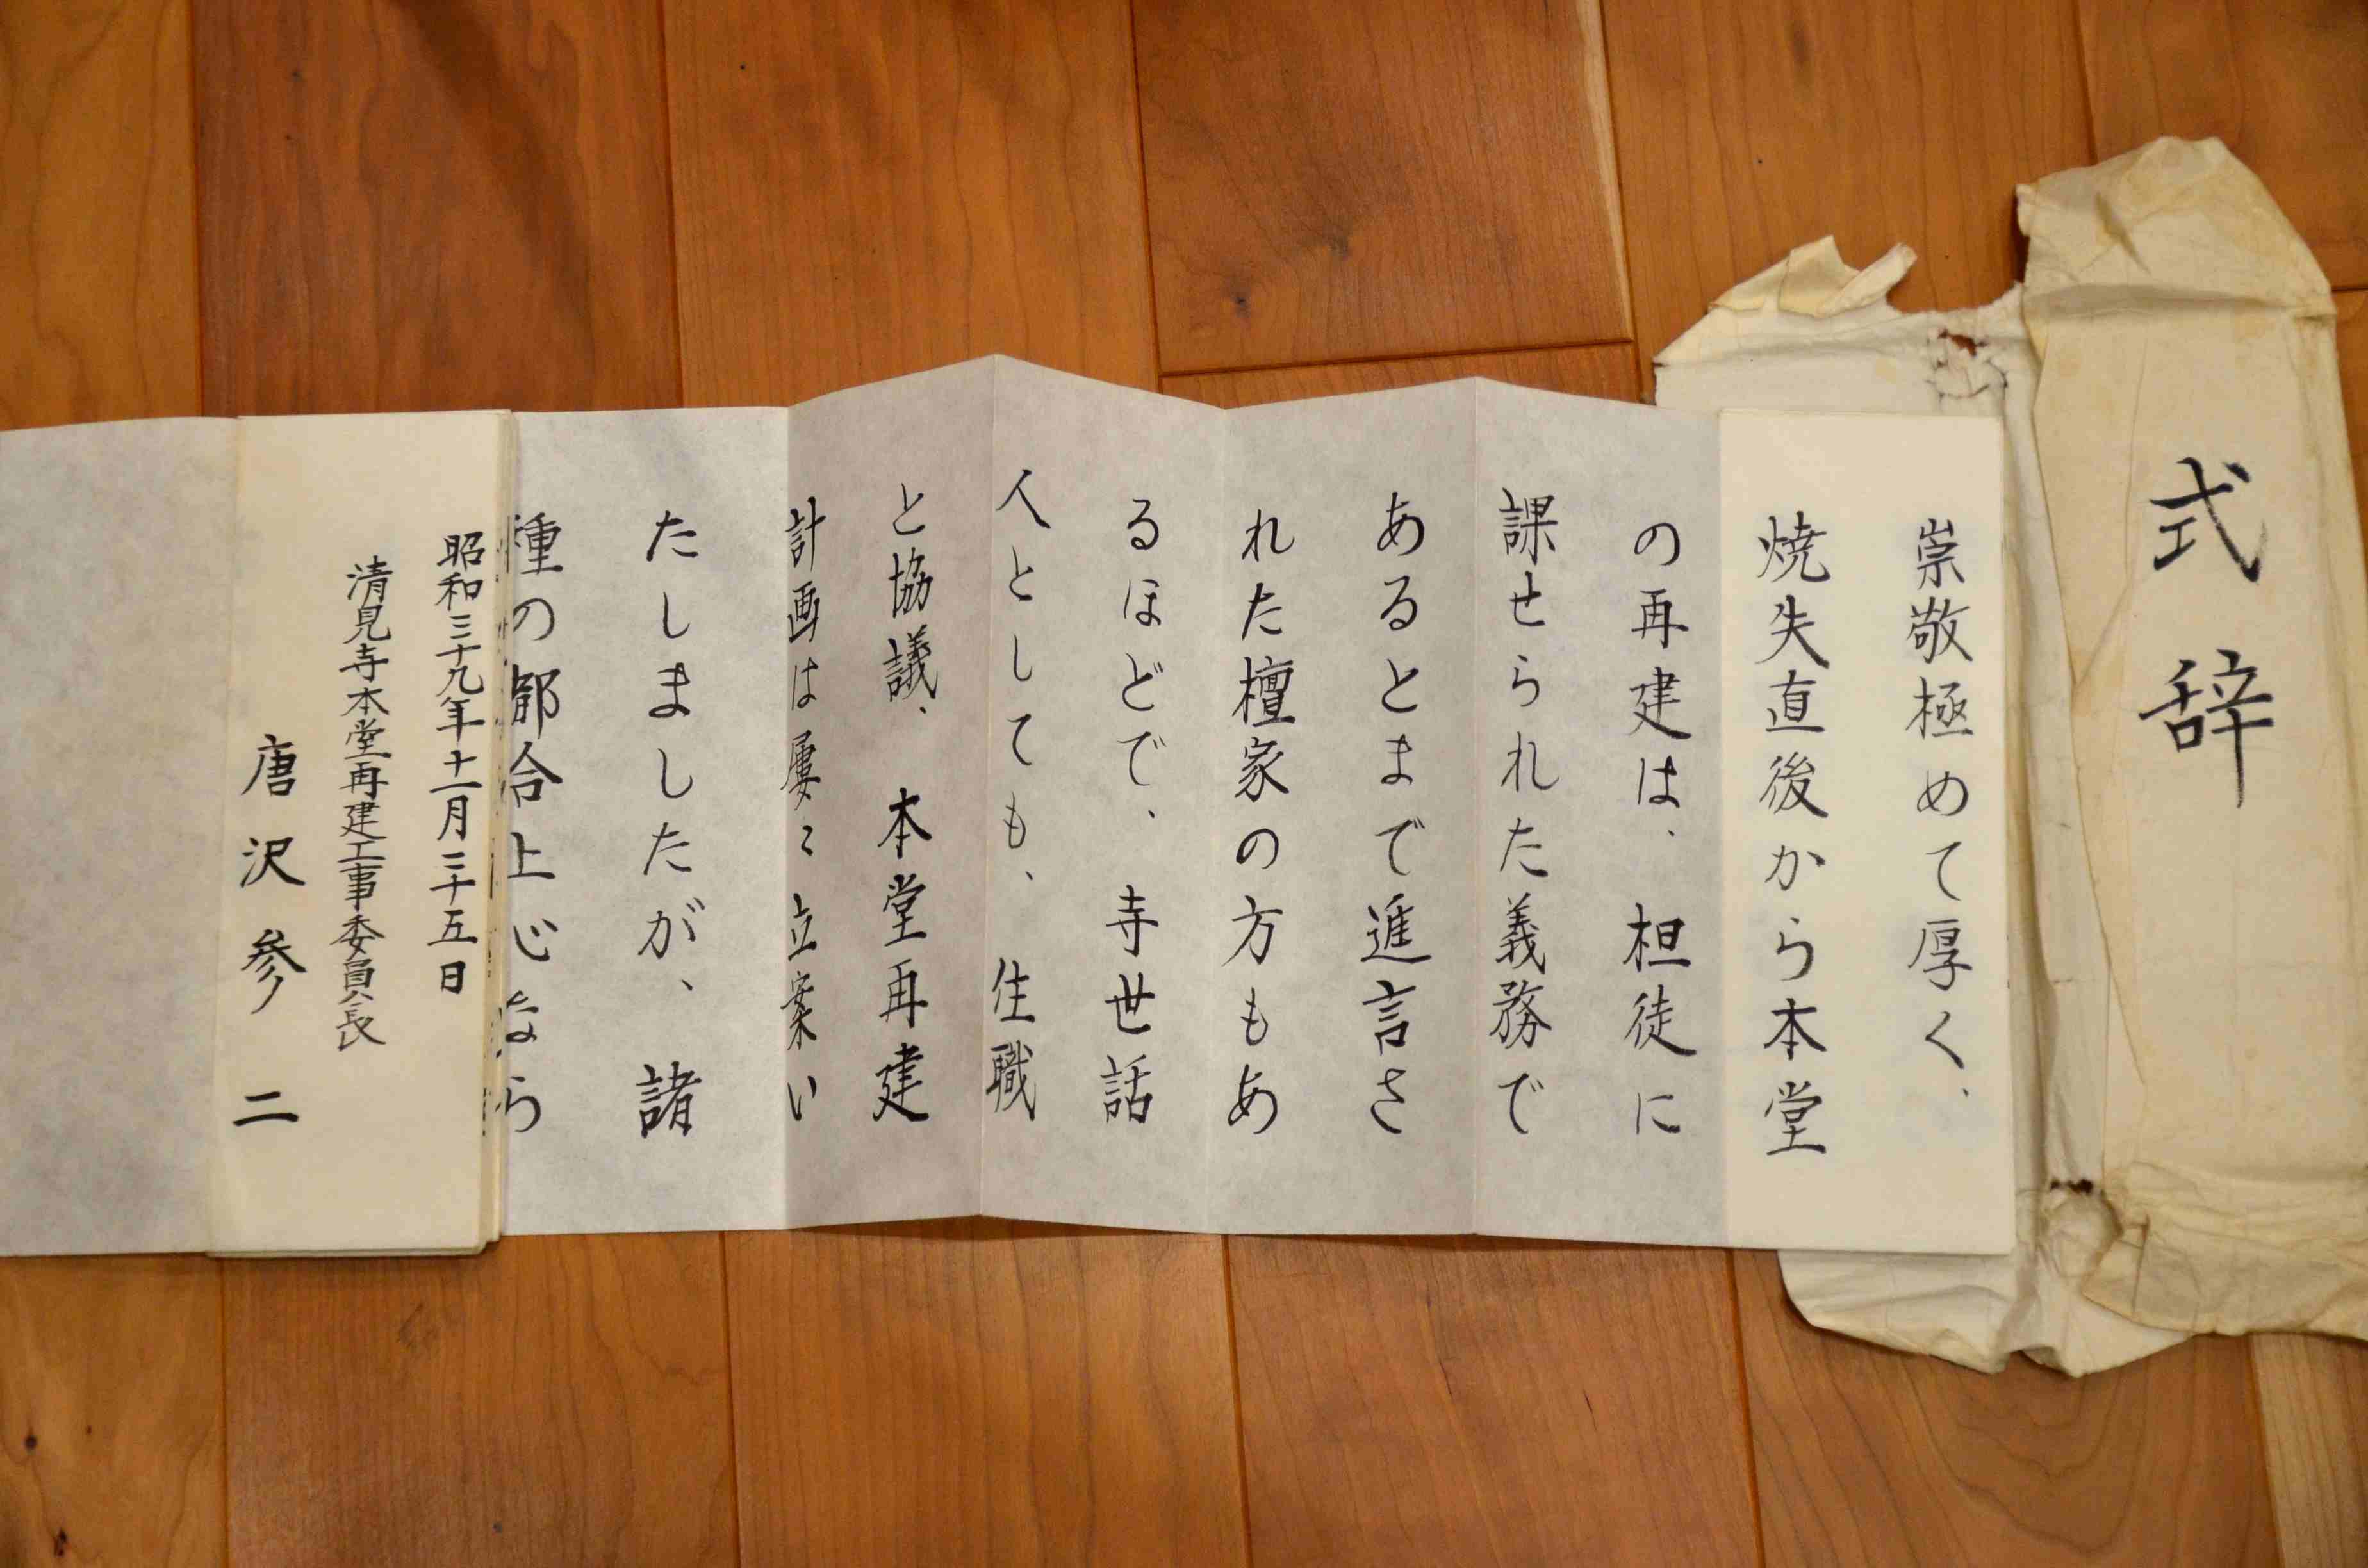 式辞
崇敬極めて厚く、
焼失直後から本堂
の再建は、担徒に
課せられた義務で
あるとまで進言さ
れた檀家の方もあ
るほどで、寺世話
人としても、住職
と協議、本堂再建
計画は屢々立案い
たしましたが、諸
種の都合上心なら
昭和三十九年十一月三十五日
清見寺本堂再建工事委員長
唐沢参二